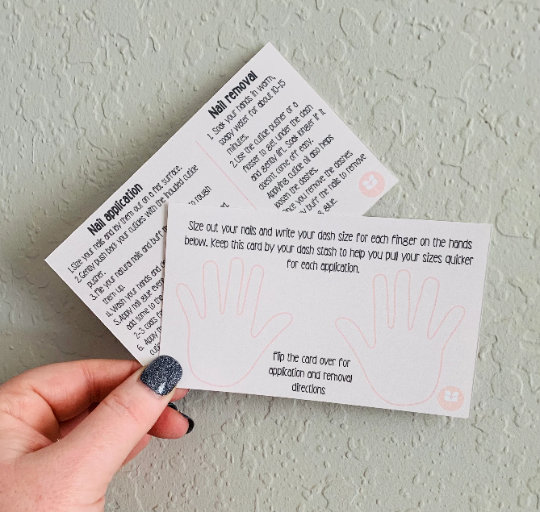 Size out your nails and write your dash size for each finger on the hands
below. Keep this card by your dash stash to help you pull your sizes quicker
for each application.
Flip the card over for
application and removal
directions
Nail application
1. Size your nails and lay them out on a flat surface.
2. Gently push back your cuticles with the included cuticle
pusher.
3. File your natural nails and buff
to rough
them up.
4. Wash your hands and
5. Apply nail glue
add some to the
2-3 coats
6. Apply
Nail removal
1. Soak your hands in warm,
soapy water for about 10-15
minutes.
2. Use the cuticle pusher or a
flosser to get under the dash
and gently lift. Soak longer if it
doesn't come off easy.
Applying cuticle oil also helps
loosen the dashes.
you remove the dashes
buff the nails to remove
glue.